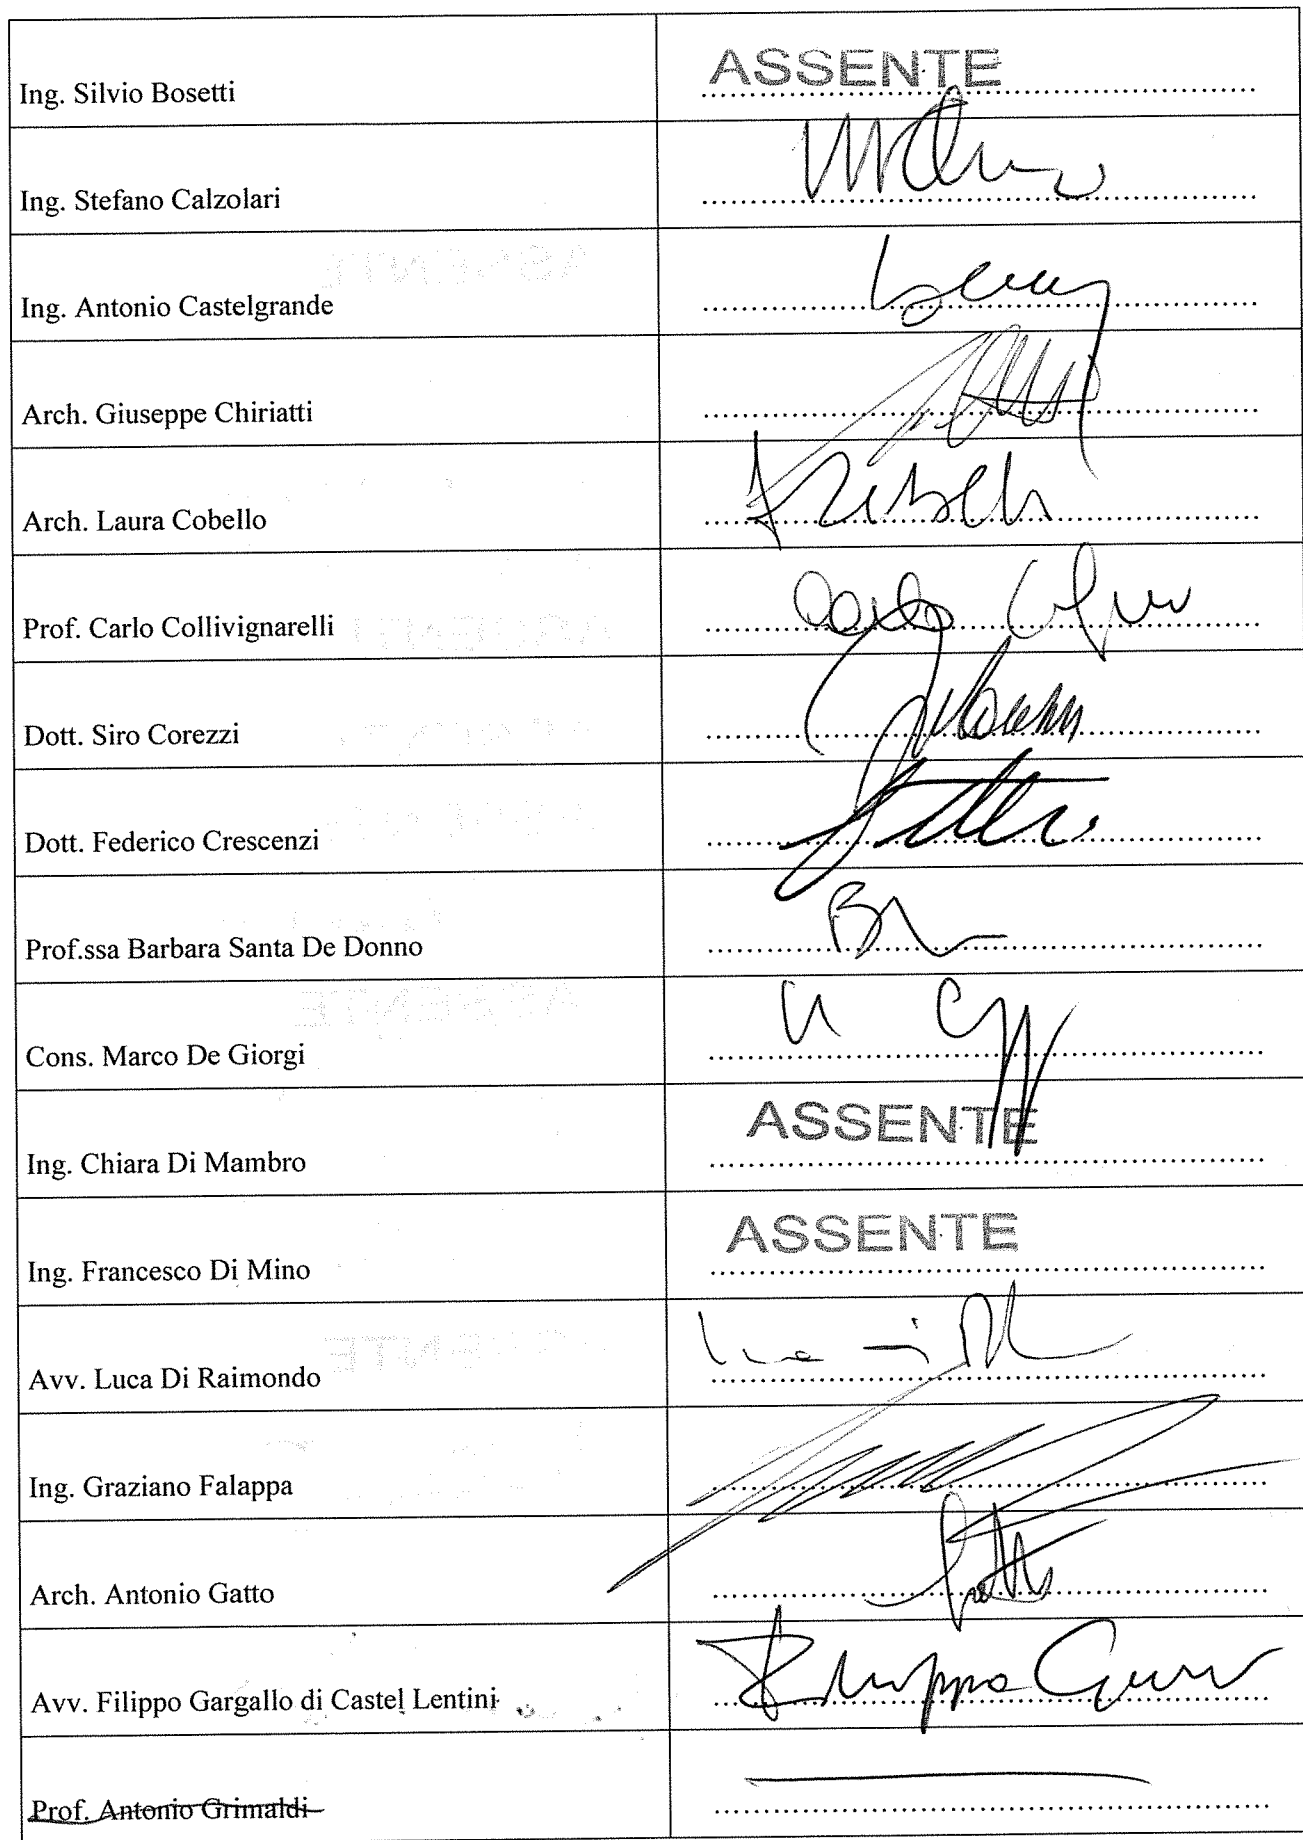 Ing. Silvio Bosetti ASSENTE
Ing. Stefano Calzolari
Ing. Antonio Castelgrande
Arch. Giuseppe Chiriatti
Arch. Laura Cobello
Prof. Carlo Collivignarelli Carlo
Dott. Siro Corezzi
Dott. Federico Crescenzi
Prof.ssa Barbara Santa De Donno
Cons. Marco De Giorgi
Ing. Chiara Di Mambro ASSENTE
Ing. Francesco Di Mino ASSENTE
Avv. Luca Di Raimondo
Ing. Graziano Falappa
Arch. Antonio Gatto
Avv. Filippo Gargallo di Castel Lentini Filippo
Prof. Antonio Grimaldi